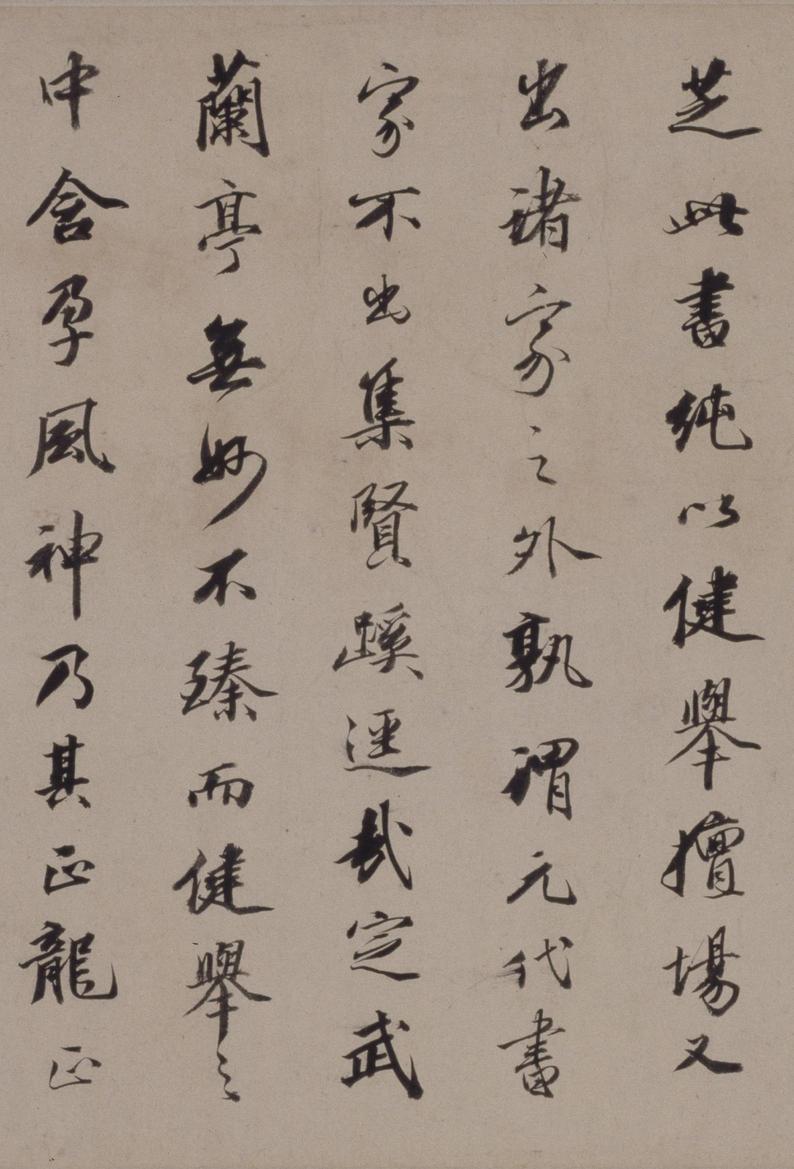 芝此書純以健舉擅場又
出諸家之外孰謂元代書
家不出集賢蹊逕哉定武
蘭亭無妙不臻而健舉之
中含孕風神乃其正龍正